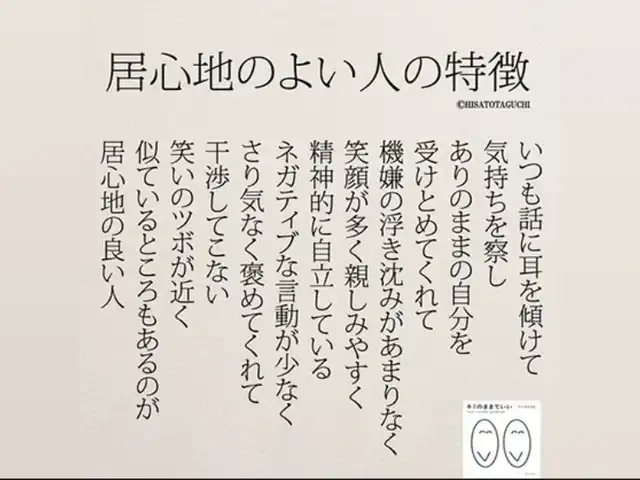 居心地のよい人の特徴
©HISATOTAGUCHI
いつも話に耳を傾けて
気持ちを察し
ありのままの自分を
受けとめてくれて
機嫌の浮き沈みがあまりなく
笑顔が多く親しみやすく
精神的に自立している
ネガティブな言動が少なく
さり気なく褒めてくれて
干渉してこない
笑いのツボが近く
似ているところもあるのが
居心地の良い人
キミのままでいい